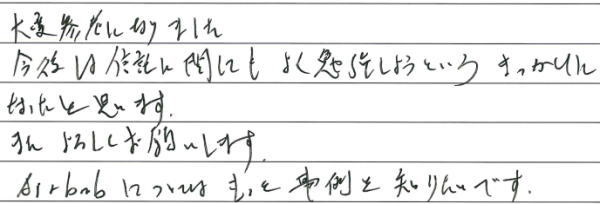 大変参考になりました
今後は信託に関しても よく勉強しようという きっかけに
なったと思います.
また よろしくお願いします.
Airbnbについては もっと事例を知りたいです.